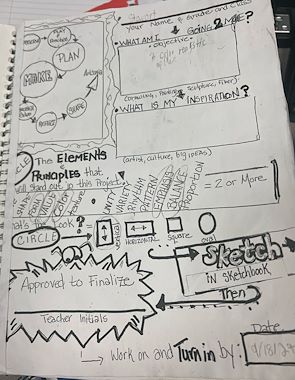 Your Name & Grade and Class
PLAY
PLAN
MAKE
SHARE
REFLECT
• WHAT AM I GOING 2 MAKE?
• Objective
(drawing, painting, sculpture, fiber)
• WHAT IS MY INSPIRATION?
(artist, culture, big IDEAS)
CIRCLE The ELEMENTS &
PRINCIPLES that
will stand out in this Project
SHAPE
FORM
VALUE
COLOR
UNITY
VARIETY
RHYTHM
PATTERN
EMPHASIS
BALANCE
Proportion
= 2 or More
CIRCLE ? =
Vertical
HORIZONTAL
Square
OVAL
Approved to Finalize
Teacher Initials
Sketch
IN SKETCHBOOK
Then
Work on and Turn in by:
Date